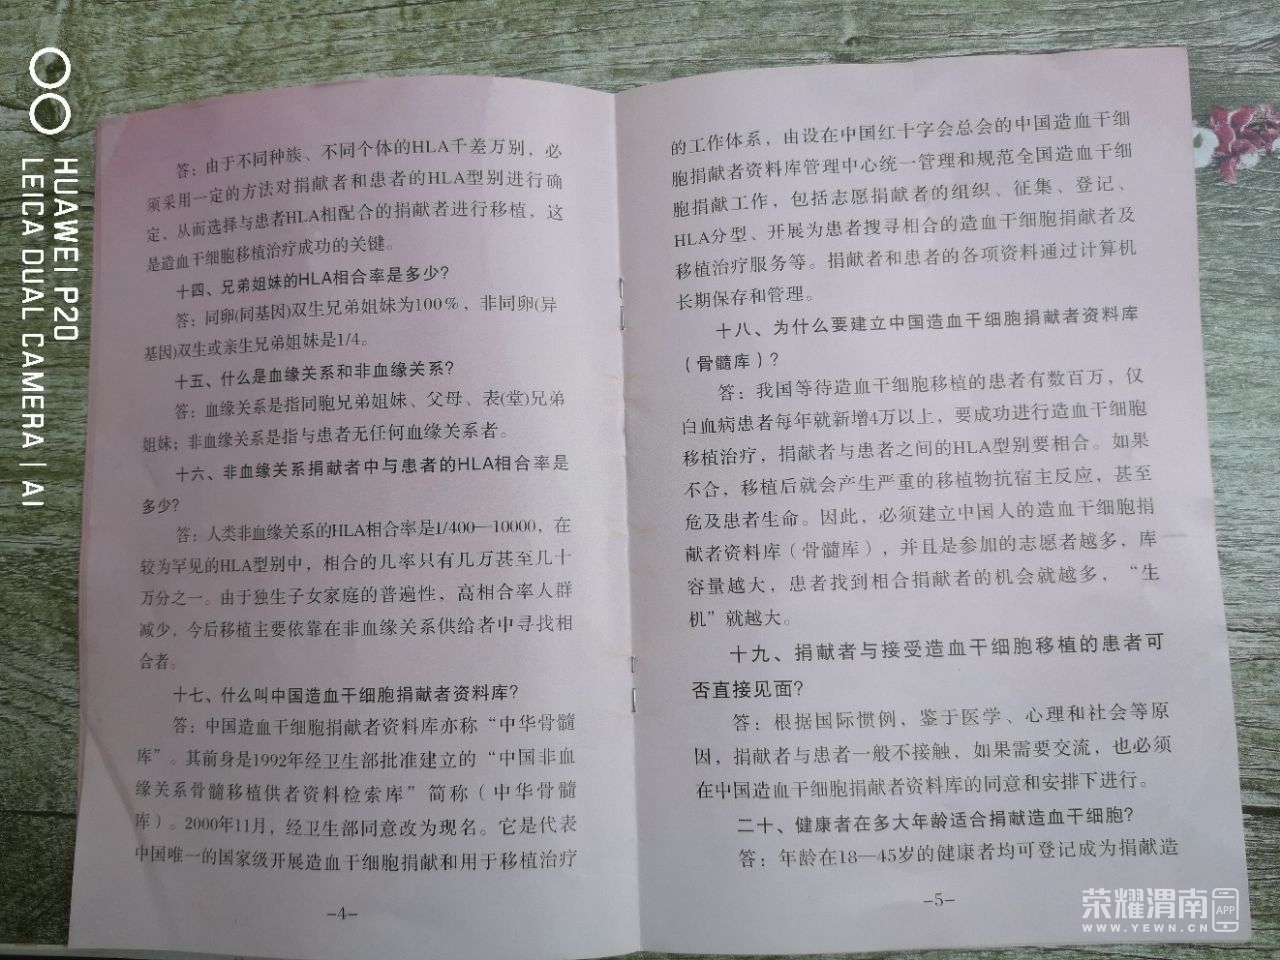 答：由于不同种族、不同个体的HLA千差万别，必
须采用一定的方法对捐献者和患者的HLA型别进行确
定，从而选择与患者HLA相配合的捐献者进行移植，这
是造血干细胞移植治疗成功的关键。
十四、兄弟姐妹的HLA相合率是多少？
答：同卵(同基因)双生兄弟姐妹为100%，非同卵(异
基因)双生或亲生兄弟姐妹是1/4。
十五、什么是血缘关系和非血缘关系？
答：血缘关系是指同胞兄弟姐妹、父母、表(堂)兄弟
姐妹；非血缘关系是指与患者无任何血缘关系者。
十六、非血缘关系捐献者中与患者的HLA相合率是
多少？
答：人类非血缘关系的HLA相合率是1/400—10000，在
较为罕见的HLA型别中，相合的几率只有几万甚至几十
万分之一。由于独生子女家庭的普遍性、高相合率人群
减少，今后移植主要依靠在非血缘关系供给者中寻找相
合者。
十七、什么叫中国造血干细胞捐献者资料库？
答：中国造血干细胞捐献者资料库亦称“中华骨髓
库”。其前身是1992年经卫生部批准建立的“中国非血
缘关系骨髓移植供者资料检索库”简称（中华骨髓
库）。2000年11月，经卫生部同意改为现名。它是代表
中国唯一的国家级开展造血干细胞捐献和用于移植治疗
-4-
的工作体系，由设在中国红十字会总会的中国造血干细
胞捐献者资料库管理中心统一管理和规范全国造血干细
胞捐献工作，包括志愿捐献者的组织、征集、登记、
HLA分型、开展为患者搜寻相合的造血干细胞捐献者及
移植治疗服务等。捐献者和患者的各项资料通过计算机
长期保存和管理。
十八、为什么要建立中国造血干细胞捐献者资料库
（骨髓库）？
答：我国等待造血干细胞移植的患者有数百万，仅
白血病患者每年就新增4万以上，要成功进行造血干细胞
移植治疗，捐献者与患者之间的HLA型别要相合。如果
不合，移植后就会产生严重的移植物抗宿主反应，甚至
危及患者生命。因此，必须建立中国人的造血干细胞捐
献者资料库（骨髓库），并且是参加的志愿者越多，库
容量越大，患者找到相合捐献者的机会就越多，“生
机”就越大。
十九、捐献者与接受造血干细胞移植的患者可
否直接见面？
答：根据国际惯例，鉴于医学、心理和社会等原
因，捐献者与患者一般不接触，如果需要交流，也必须
在中国造血干细胞捐献者资料库的同意和安排下进行。
二十、健康者在多大年龄适合捐献造血干细胞？
答：年龄在18—45岁的健康者均可登记成为捐献造
-5-
HUAWEI P20
LEICA DUAL CAMERA | AI
荣耀渭南 APP
WWW.YEWN.CN